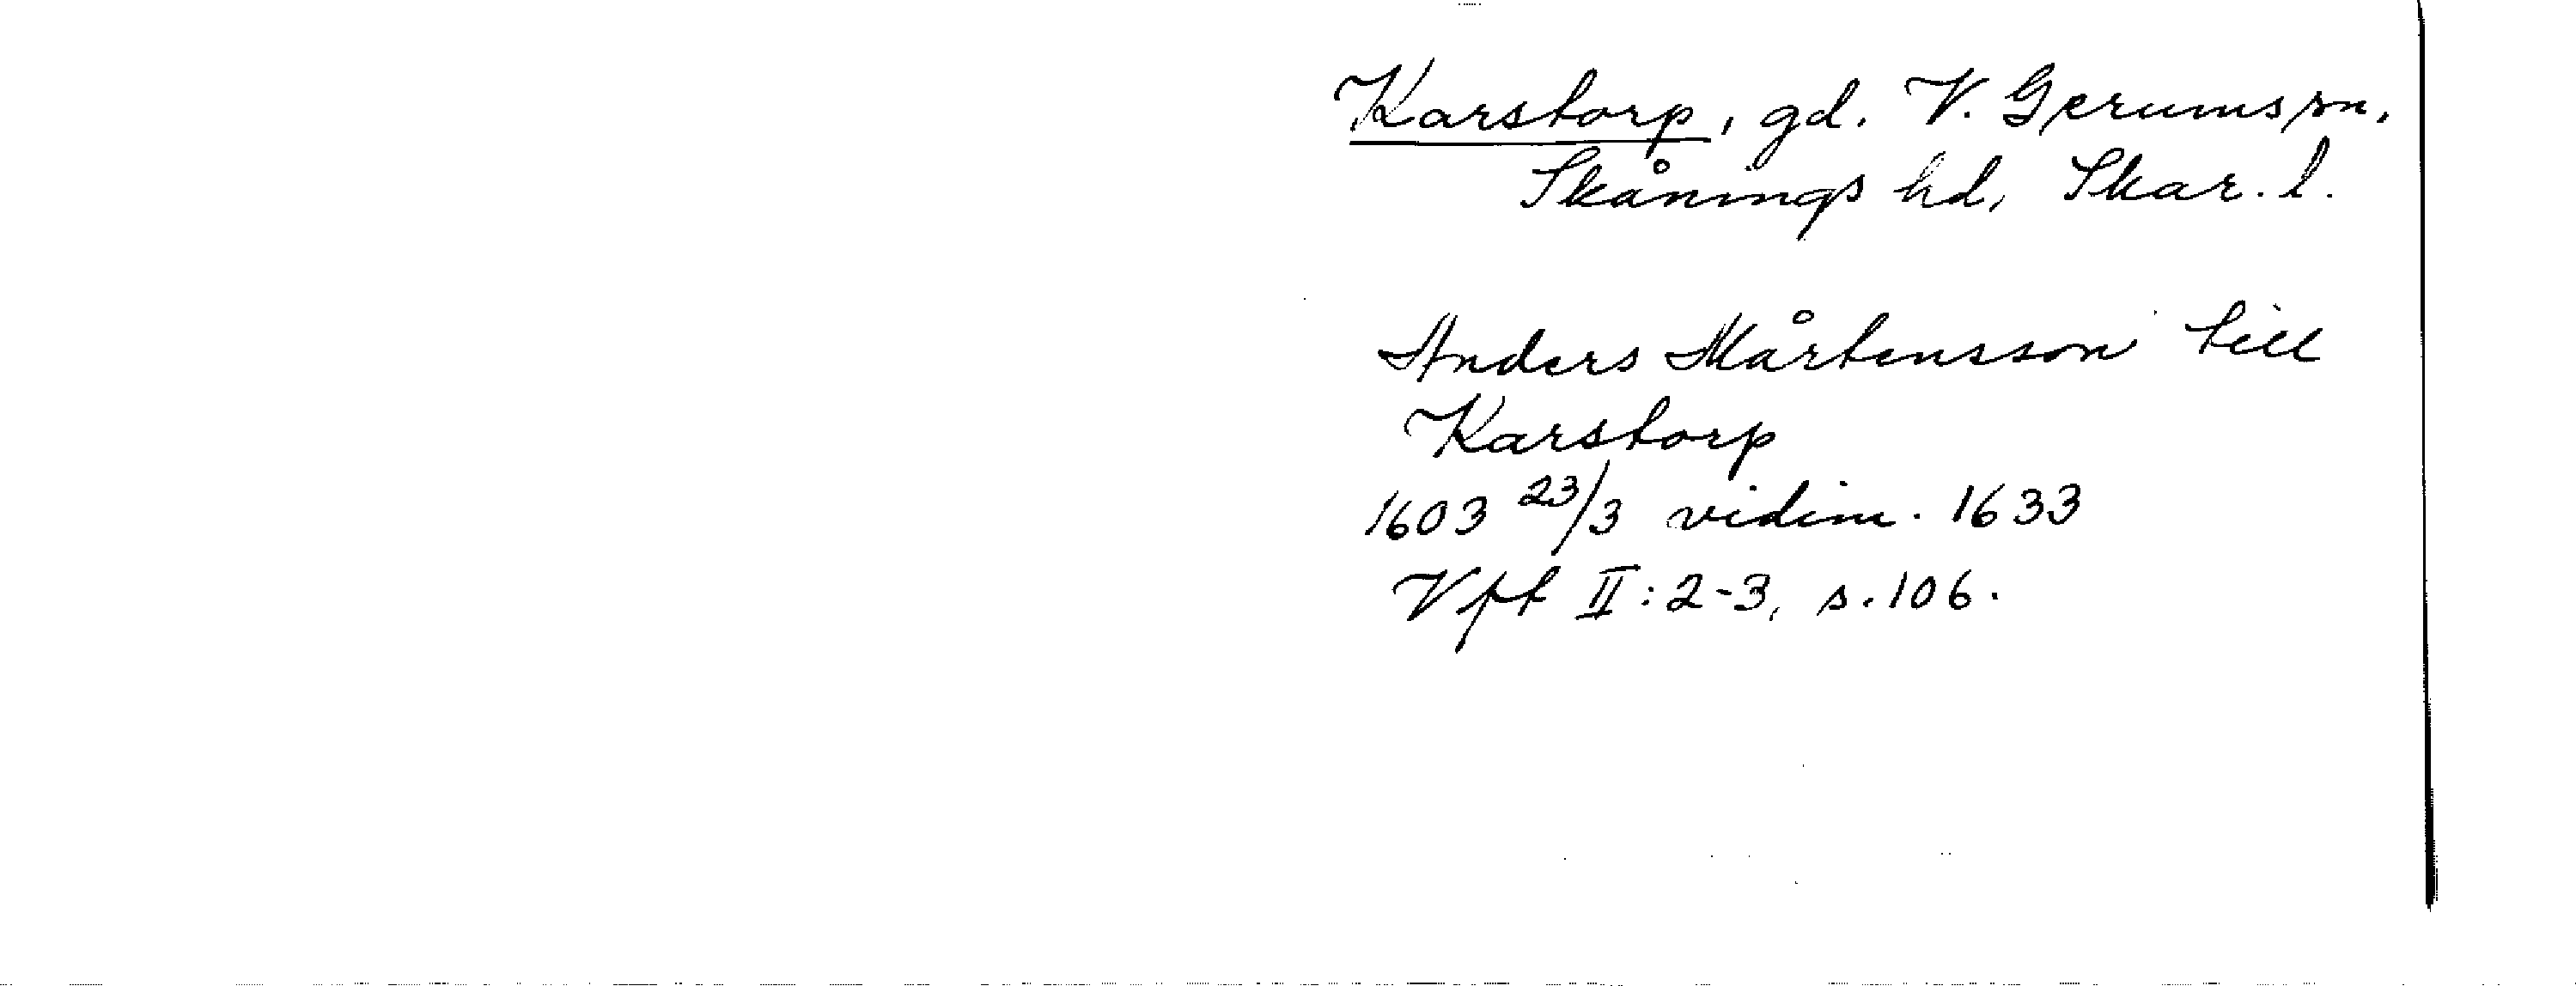 Karstorp, gd. V. Gerums sn.
Skånings hd, Skar. l.
Anders Mårtensson till
Karstorp
1603 23/3 vidim. 1633
Vft II: 2-3, s. 106.